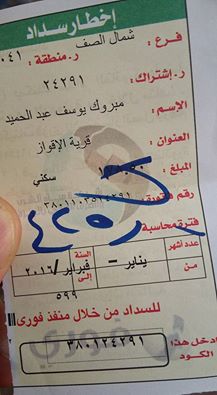 إخطار سداد
فرع : شمال الصف
ر. منطقة : ٠٤١
ر. إشتراك : ٢٤٢٩١
الإسم : مبروك يوسف عبد الحميد
العنوان : قرية الإقواز
المبلغ سكني
رقم
فترة محاسبة
عدد أشهر
السنة
من يناير - إلى فبراير / ٢٠١٦
٥٩٩
للسداد من خلال منفذ فوري
ادخل هذا الكود ٣٨٠١٢٤٢٩١